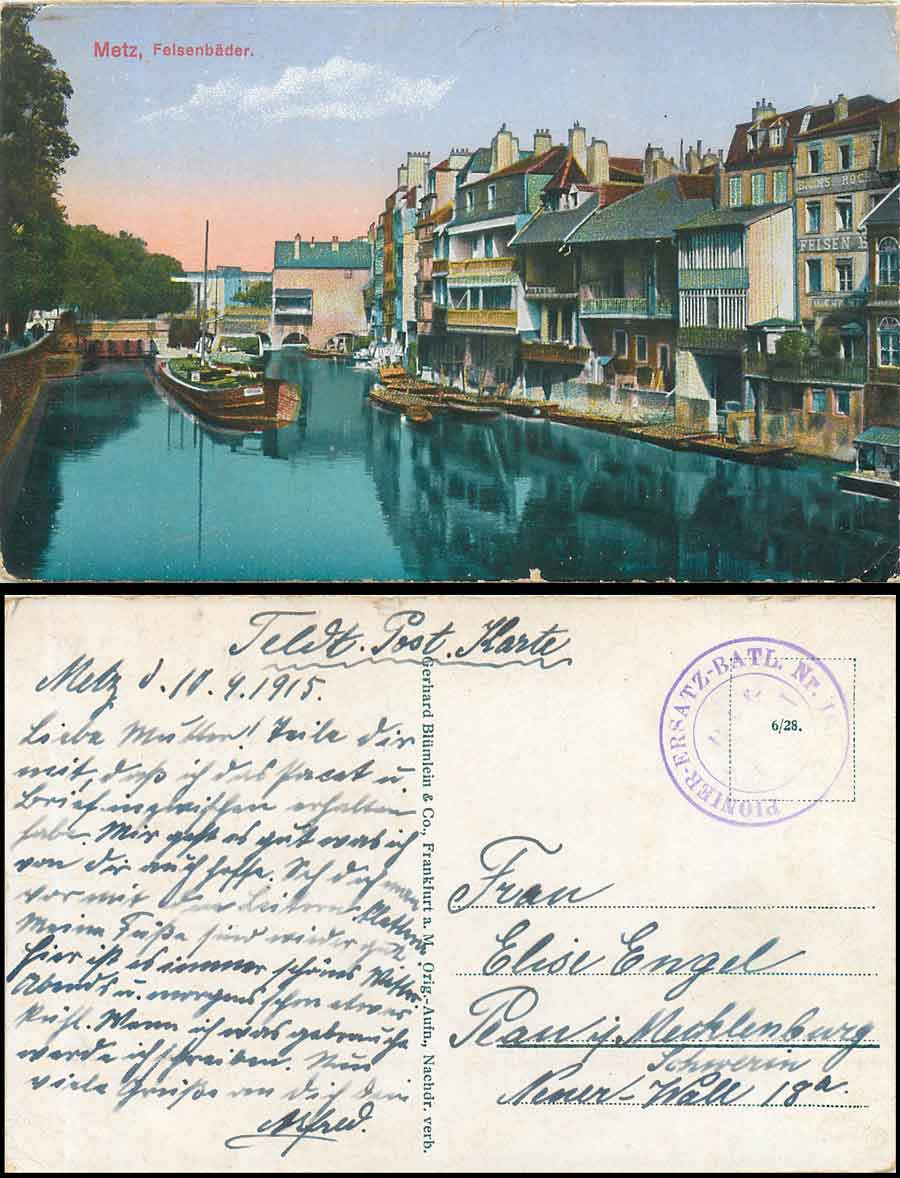 Metz, Felsenbäder.
BAINS ROCH
FELSEN B
Feldt. Post. Karte
Metz d. 10. 9. 1915.
Liebe Mutter! Teile dir
mit, daß ich das Pacet u
Brief inzwischen erhalten
habe. Mir geht es gut was ich
von dir auch hoffe. Seh dich man
vor mit den Leitern klettern
Meine Füße sind wieder gut
Hier ist es immer schönes Wetter.
Abends u. morgens schon etwas
kühl. Wenn ich was gebrauche
werde ich schreiben. Nun
viele Grüße an dich dein
Alfred.
Gerhard Blümlein & Co., Frankfurt a. M. Orig.-Aufn., Nachdr. verb.
PIONIER-ERSATZ-BATL. Nr.
6/28.
Frau
Elise Engel
Plau i. Mecklenburg
Schwerin
Neuer-Wall 18a.